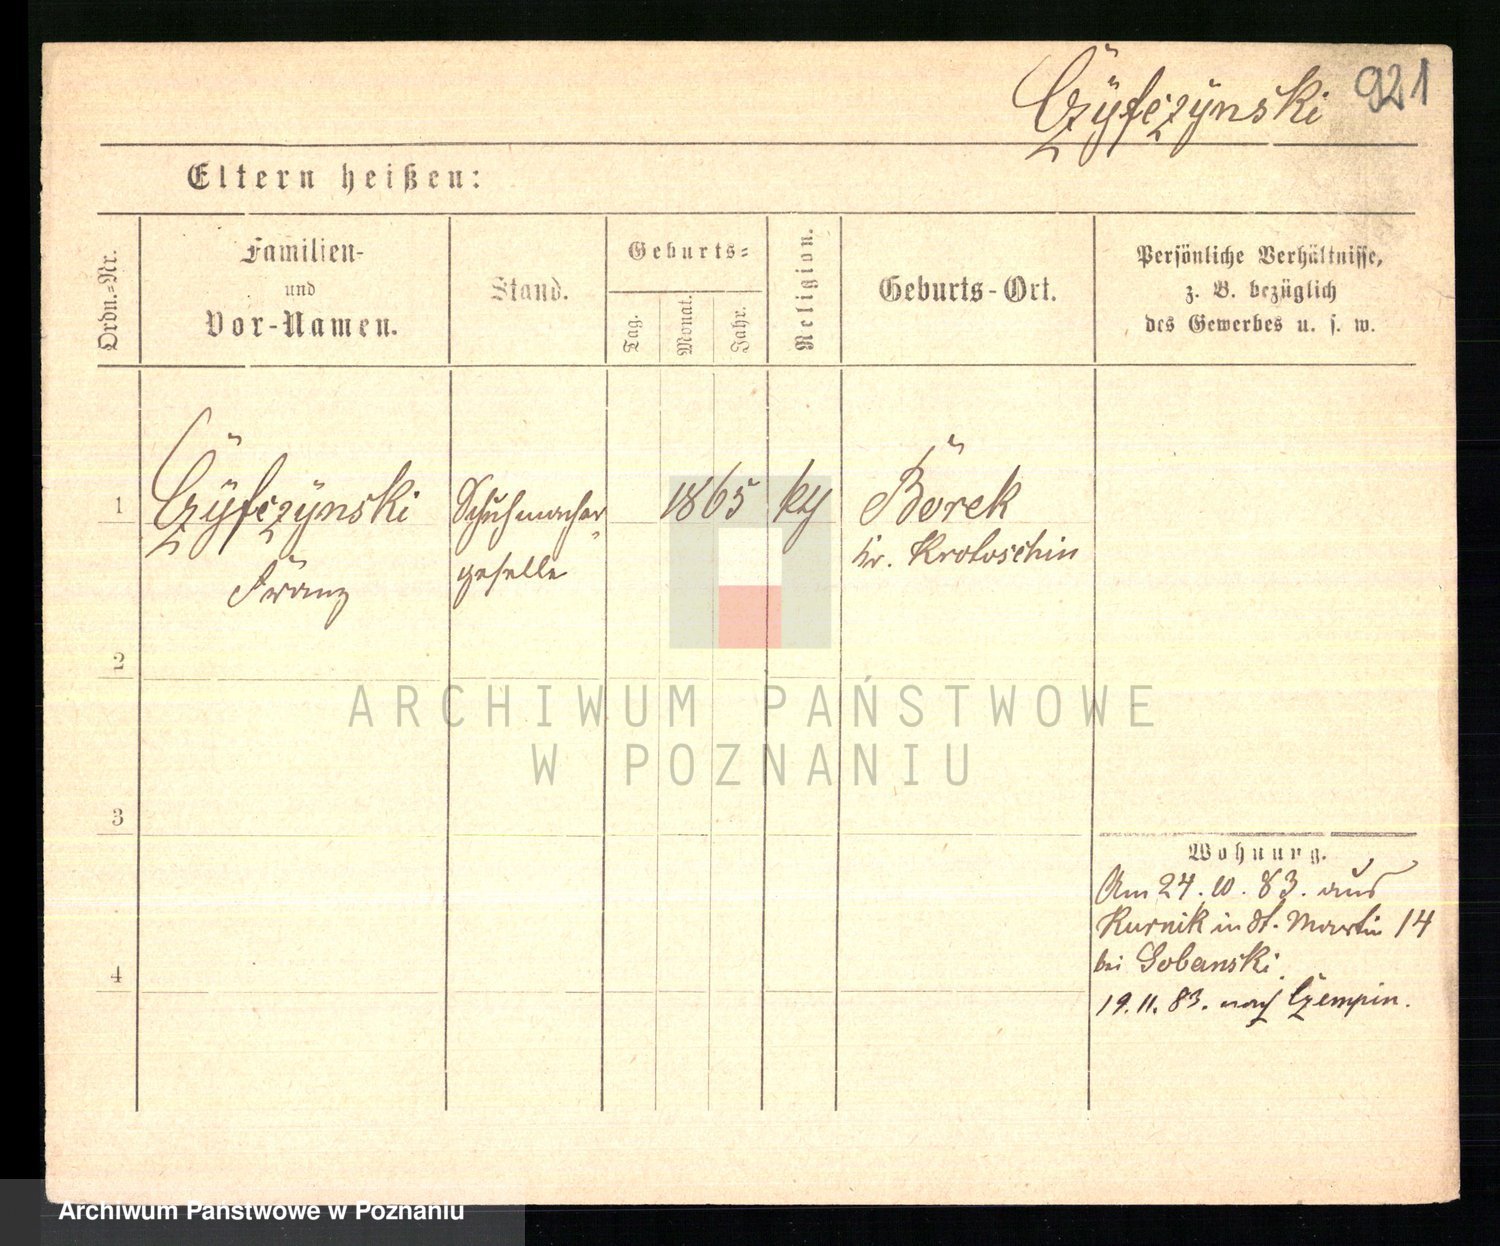 Czyfczynski 921
Eltern heißen:
Ordn.-Nr.
Familien-
und
Vor-Namen.
Stand.
Geburts-
Tag.
Monat.
Jahr.
Religion.
Geburts-Ort.
Persönliche Verhältnisse,
z. B. bezüglich
des Gewerbes u. s. w.
1 Czyfczynski Schuhmacher- 1865 Borek
Franz geselle Kr. Krotoschin
2
ARCHIWUM PAŃSTWOWE
W POZNANIU
3
Wohnung.
Am 24. 10. 83. aus
Kurnik in St. Martin 14
bei Sobanski.
4
19. 11. 83. nach Czempin.
Archiwum Państwowe w Poznaniu